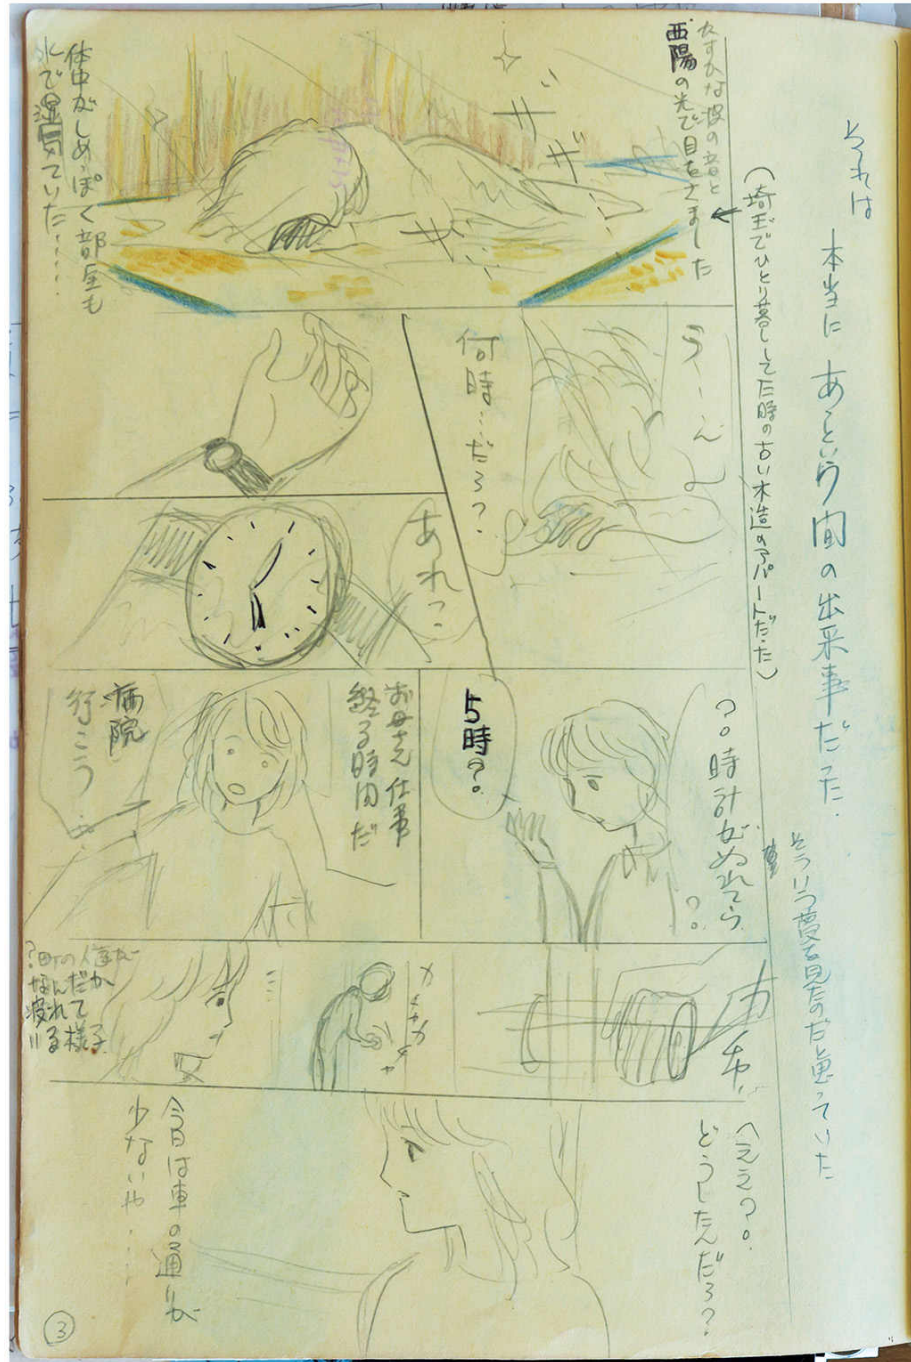 それは
本当に あっという間の出来事だった.
そういう夢を見たのだと思っていた
(埼玉でひとり暮ししてた時の古い木造のアパートだった)
かすかな波の音と
西陽の光で目をさました
ザ
ザ
ザ
体中がしめっぽく部屋も
水で湿気ていた……
うーん
何時…だろ?
あれっ
?。時計がぬれてら
?。
5時?。
お母さん仕事
終る時間だ
病院
行こう…
カチャ
カチャカチャ
町の人達が
なんだか
疲れて
いる様子
?
へええ?。
どうしたんだろ?
今日は車の通りが
少ないや……
3